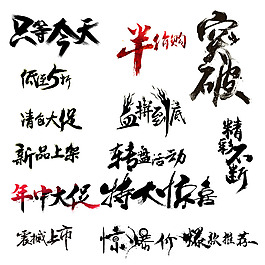 只等今天
半价购
突破
低至5折
盖拼到底
清仓大促
精彩不断
新品上架
转盘活动
年中大促
特大惊喜
震撼上市
惊爆价
爆款推荐